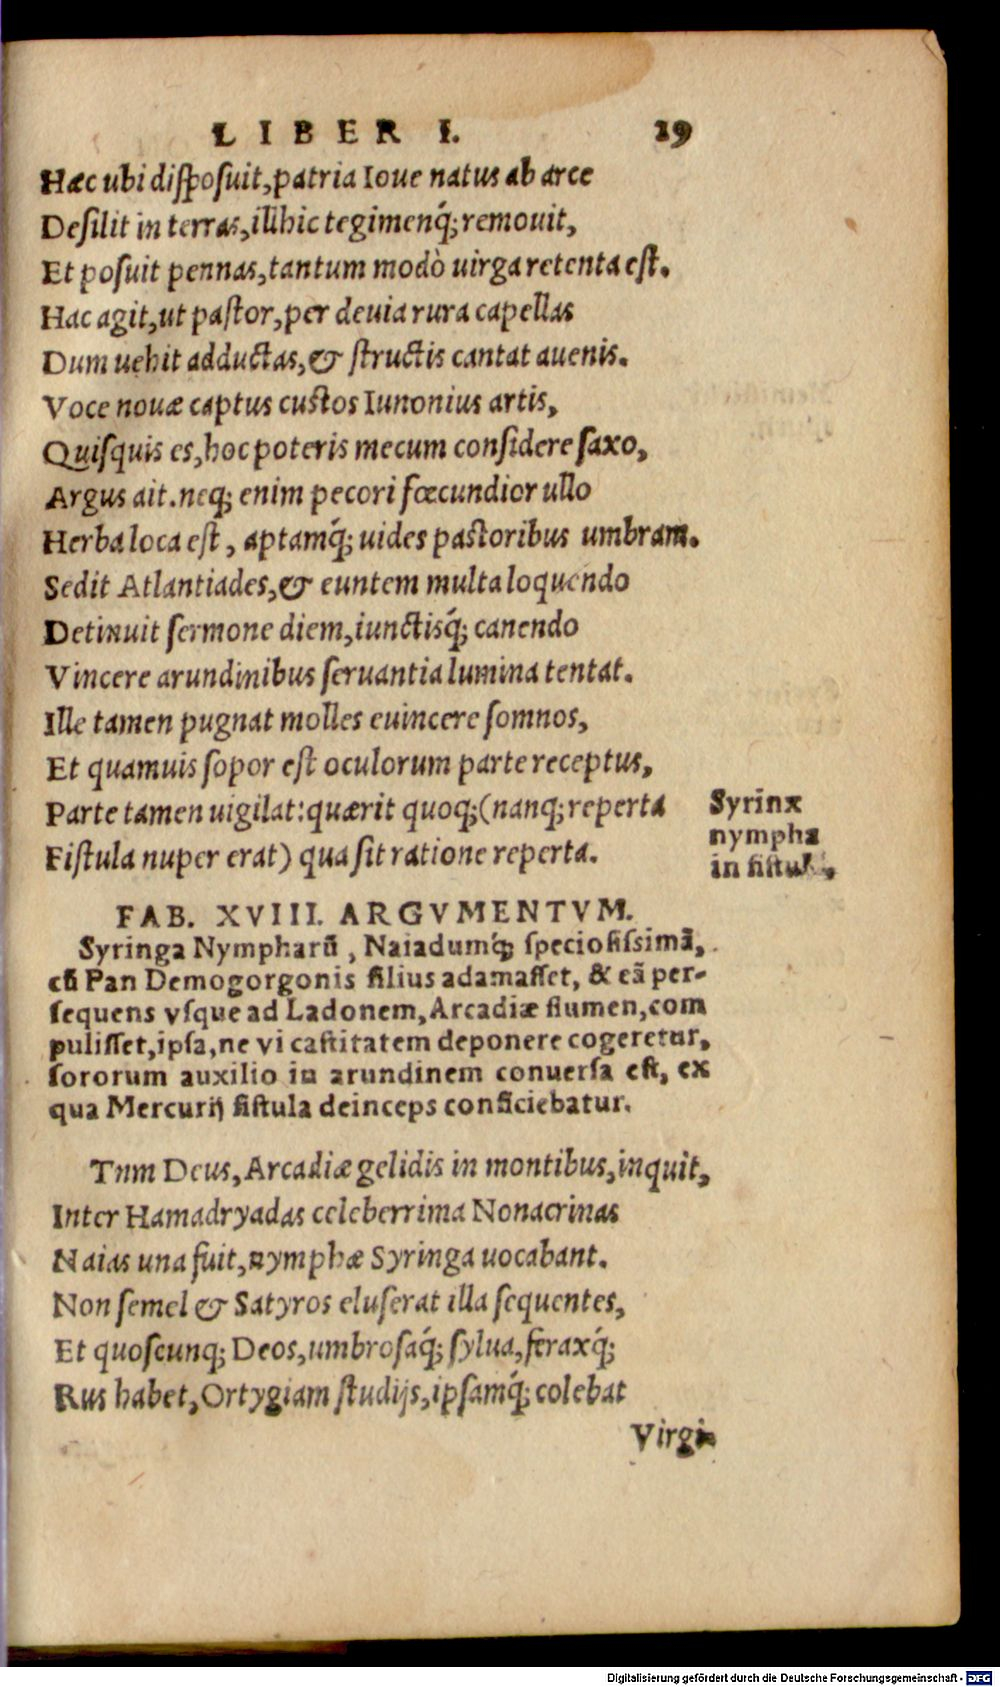 LIBER I. 19
Hæc ubi disposuit, patria Ioue natus ab arce
Desilit in terras, illhic tegimenq́; remouit,
Et posuit pennas, tantum modò uirga retenta est.
Hac agit, ut pastor, per deuia rura capellas
Dum uehit adductas, & structis cantat auenis.
Voce nouæ captus custos Iunonius artis,
Quisquis es, hoc poteris mecum considere saxo,
Argus ait. neq; enim pecori fœcundior ullo
Herba loca est, aptamq́; uides pastoribus umbram.
Sedit Atlantiades, & euntem multa loquendo
Detinuit sermone diem, iunctisq́; canendo
Vincere arundinibus seruantia lumina tentat.
Ille tamen pugnat molles euincere somnos,
Et quamuis sopor est oculorum parte receptus,
Parte tamen uigilat: quærit quoq; (nanq; reperta
Fistula nuper erat) qua sit ratione reperta.
Syrinx
nympha
in fistulā,
FAB. XVIII. ARGVMENTVM.
Syringa Nympharū, Naiadumq́; speciosissimā,
cū Pan Demogorgonis filius adamasset, & eā per-
sequens vsque ad Ladonem, Arcadiæ flumen, com
pulisset, ipsa, ne vi castitatem deponere cogeretur,
sororum auxilio in arundinem conuersa est, ex
qua Mercurij fistula deinceps conficiebatur.
Tnm Deus, Arcadiæ gelidis in montibus, inquit,
Inter Hamadryadas celeberrima Nonacrinas
Naias una fuit, nymphæ Syringa uocabant.
Non semel & Satyros eluserat illa sequentes,
Et quoscunq; Deos, umbrosaq́; sylua, feraxq́;
Rus habet, Ortygiam studijs, ipsamq́; colebat
Virgi-
Digitalisierung gefördert durch die Deutsche Forschungsgemeinschaft - DFG